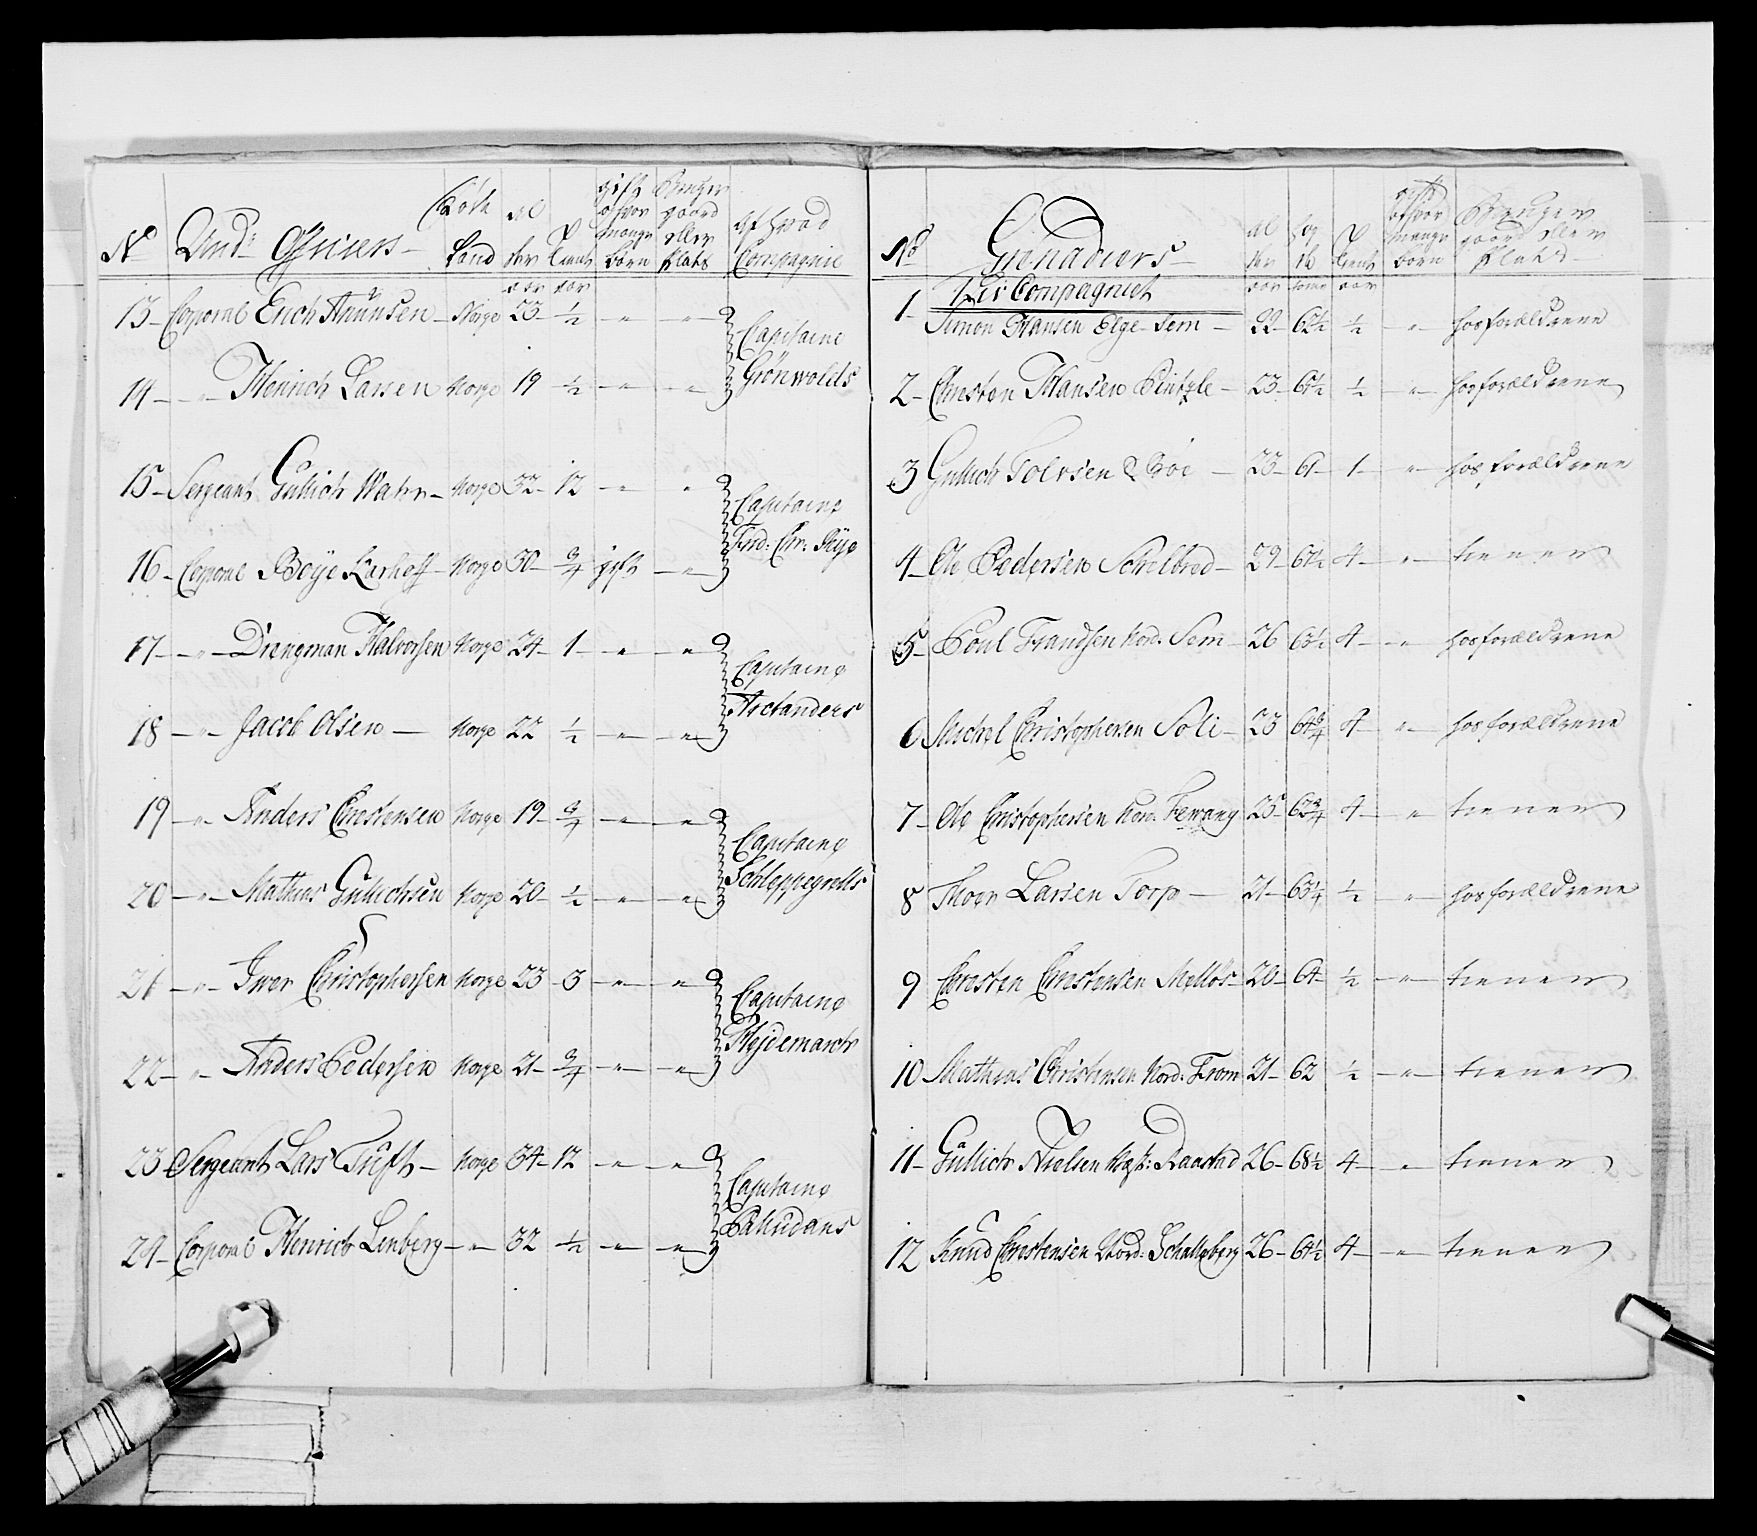 No Und: Officiers Föde Land Al der aar Tient aar gift og hvor mange børn Bruger gaard eller plads Af hvad Compagnie
13 Corporal Erich Knudsen Norge 23 ½ " " Capitaine Grönwolds
14 " Henrich Larsen Norge 19 ½ " "
15 Sergeant Gullich Wahr Norge 32 12 " " Capitaine Frid: Chr: Rÿe
16 Corporal Boÿe Karhoff Norge 30 ¾ gift "
17 " Drengman Halvorsen Norge 24 1 " " Capitaine Arctanders
18 " Jacob Olsen Norge 22 ½ " "
19 " Anders Christensen Norge 19 ¾ " " Capitaine Schleppegrells
20 " Mathias Gullichsen Norge 20 ½ " "
21 " Iwer Christophersen Norge 23 3 " " Capitaine Hejdemarch
22 " Anders Pedersen Norge 21 ¾ " "
23 Sergeant Lars Tufft Norge 34 12 " " Capitaine Paludans
24 Corporal Henrich Lenberg " 32 ½ " "
No Grenadiers al der aar tomer Tient aar gift og hvor mange børn Bruger gaard eller plads
Liv Compagniet
1 Simon Hansen Elge Sem 22 62½ ½ " hos forældrene
2 Christen Hansen 23 61½ ½ " hos forældrene
3 Gullich Tolvsen Röe 23 61 1 " hos forældrene
4 Ole Pedersen Schilbred 29 61½ 4 " tiener
5 Poul Frandsen Nord: Sem 26 63½ 4 " hos forældrene
6 Michel Christophersen Soli 23 64¾ 4 " hos forældrene
7 Ole Christophersen Nord: Fewang 25 62¾ 4 " tiener
8 Thoer Larsen Torp 21 63¼ ½ " hos forældrene
9 Christen Christensen Melløs 20 64 ½ " tiener
10 Mathias Christensen Nord: From 21 62 ½ " tiener
11 Gullich Nielsen West: Raastad 26 68½ 4 " tiener
12 Knud Christensen Nord: Schalleberg 26 64½ 4 " tiener